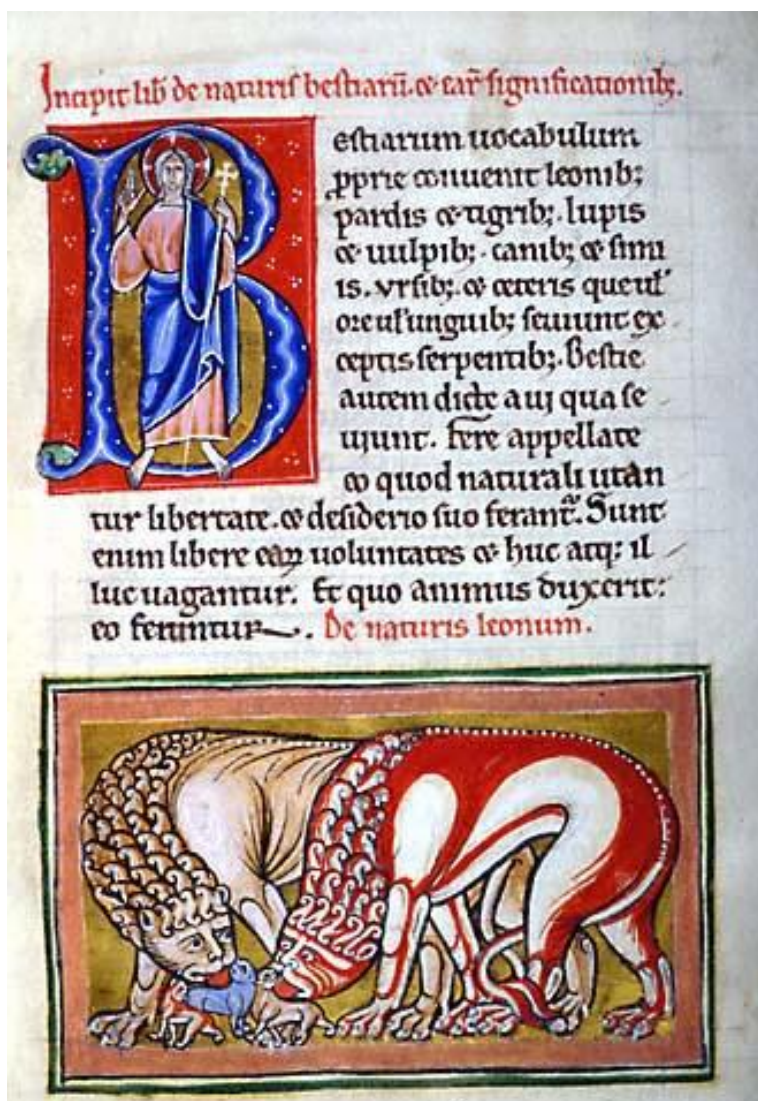 Incipit lib̄ de naturis bestiarū. ⁊ ear̄ significationib;.
Bestiarum uocabulum
ꝓprie conuenit leonib;
pardis ⁊ tigrib;. lupis
⁊ uulpib;. canib; ⁊ simi
is. vrsib;. ⁊ ceteris que ul'
ore ul' unguib; seuiunt ex
ceptis serpentib;. Bestie
autem dicte a ui qua se
uiunt. Fere appellate
eo quod naturali utan
tur libertate. ⁊ desiderio suo ferant᷑. Sunt
enim libere eaꝝ uoluntates ⁊ huc atq; il
luc uagantur. Et quo animus duxerit:
eo feruntur. De naturis leonum.